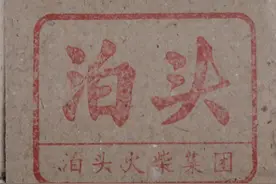 泊头
泊头火柴集团